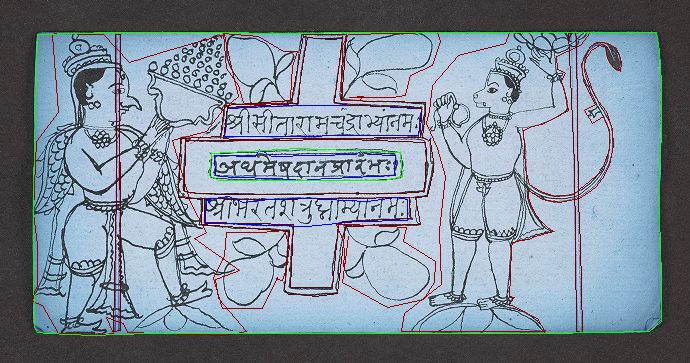 श्रीसीतारामचंद्राभ्यांनमः
अथमेषदानप्रारंभः
श्रीभरतशत्रुघ्नाभ्यांनमः